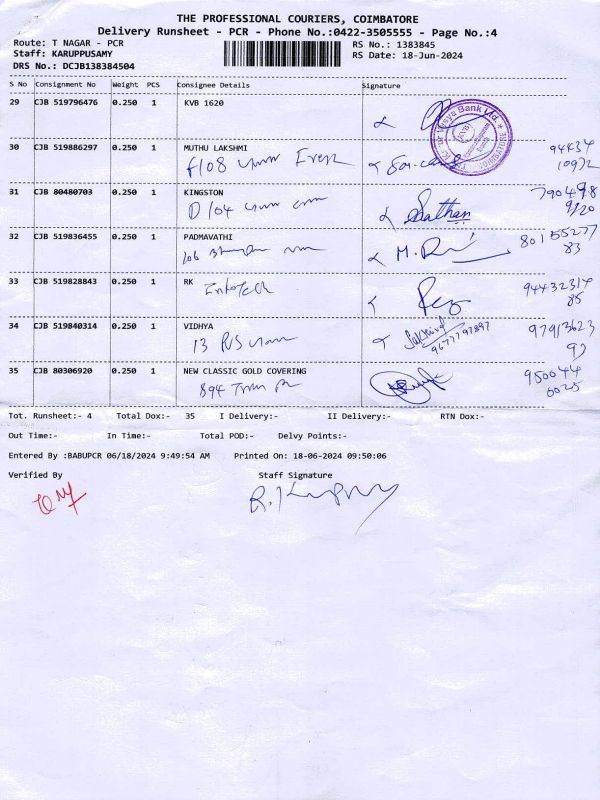 THE PROFESSIONAL COURIERS, COIMBATORE
Delivery Runsheet - PCR - Phone No.:0422-3505555 - Page No.:4
Route: T NAGAR - PCR RS No.: 1383845
Staff: KARUPPUSAMY RS Date: 18-Jun-2024
DRS No.: DCJB138384504
S No Consignment No Weight PCS Consignee Details Signature
29 CJB 519796476 0.250 1 KVB 1620
Vysya Bank Ltd.
COIMBATORE
30 CJB 519886297 0.250 1 MUTHU LAKSHMI
F/08
31 CJB 80480703 0.250 1 KINGSTON
D/04 Sathan
32 CJB 519836455 0.250 1 PADMAVATHI 80155277
106 83
33 CJB 519828843 0.250 1 RK
Infotech 94432314
85
34 CJB 519840314 0.250 1 VIDHYA 97913623
13 9677797897 93
35 CJB 80306920 0.250 1 NEW CLASSIC GOLD COVERING 950044
894 0025
Tot. Runsheet:- 4 Total Dox:- 35 I Delivery:- II Delivery:- RTN Dox:-
Out Time:- In Time:- Total POD:- Delvy Points:-
Entered By :BABUPCR 06/18/2024 9:49:54 AM Printed On: 18-06-2024 09:50:06
Verified By Staff Signature